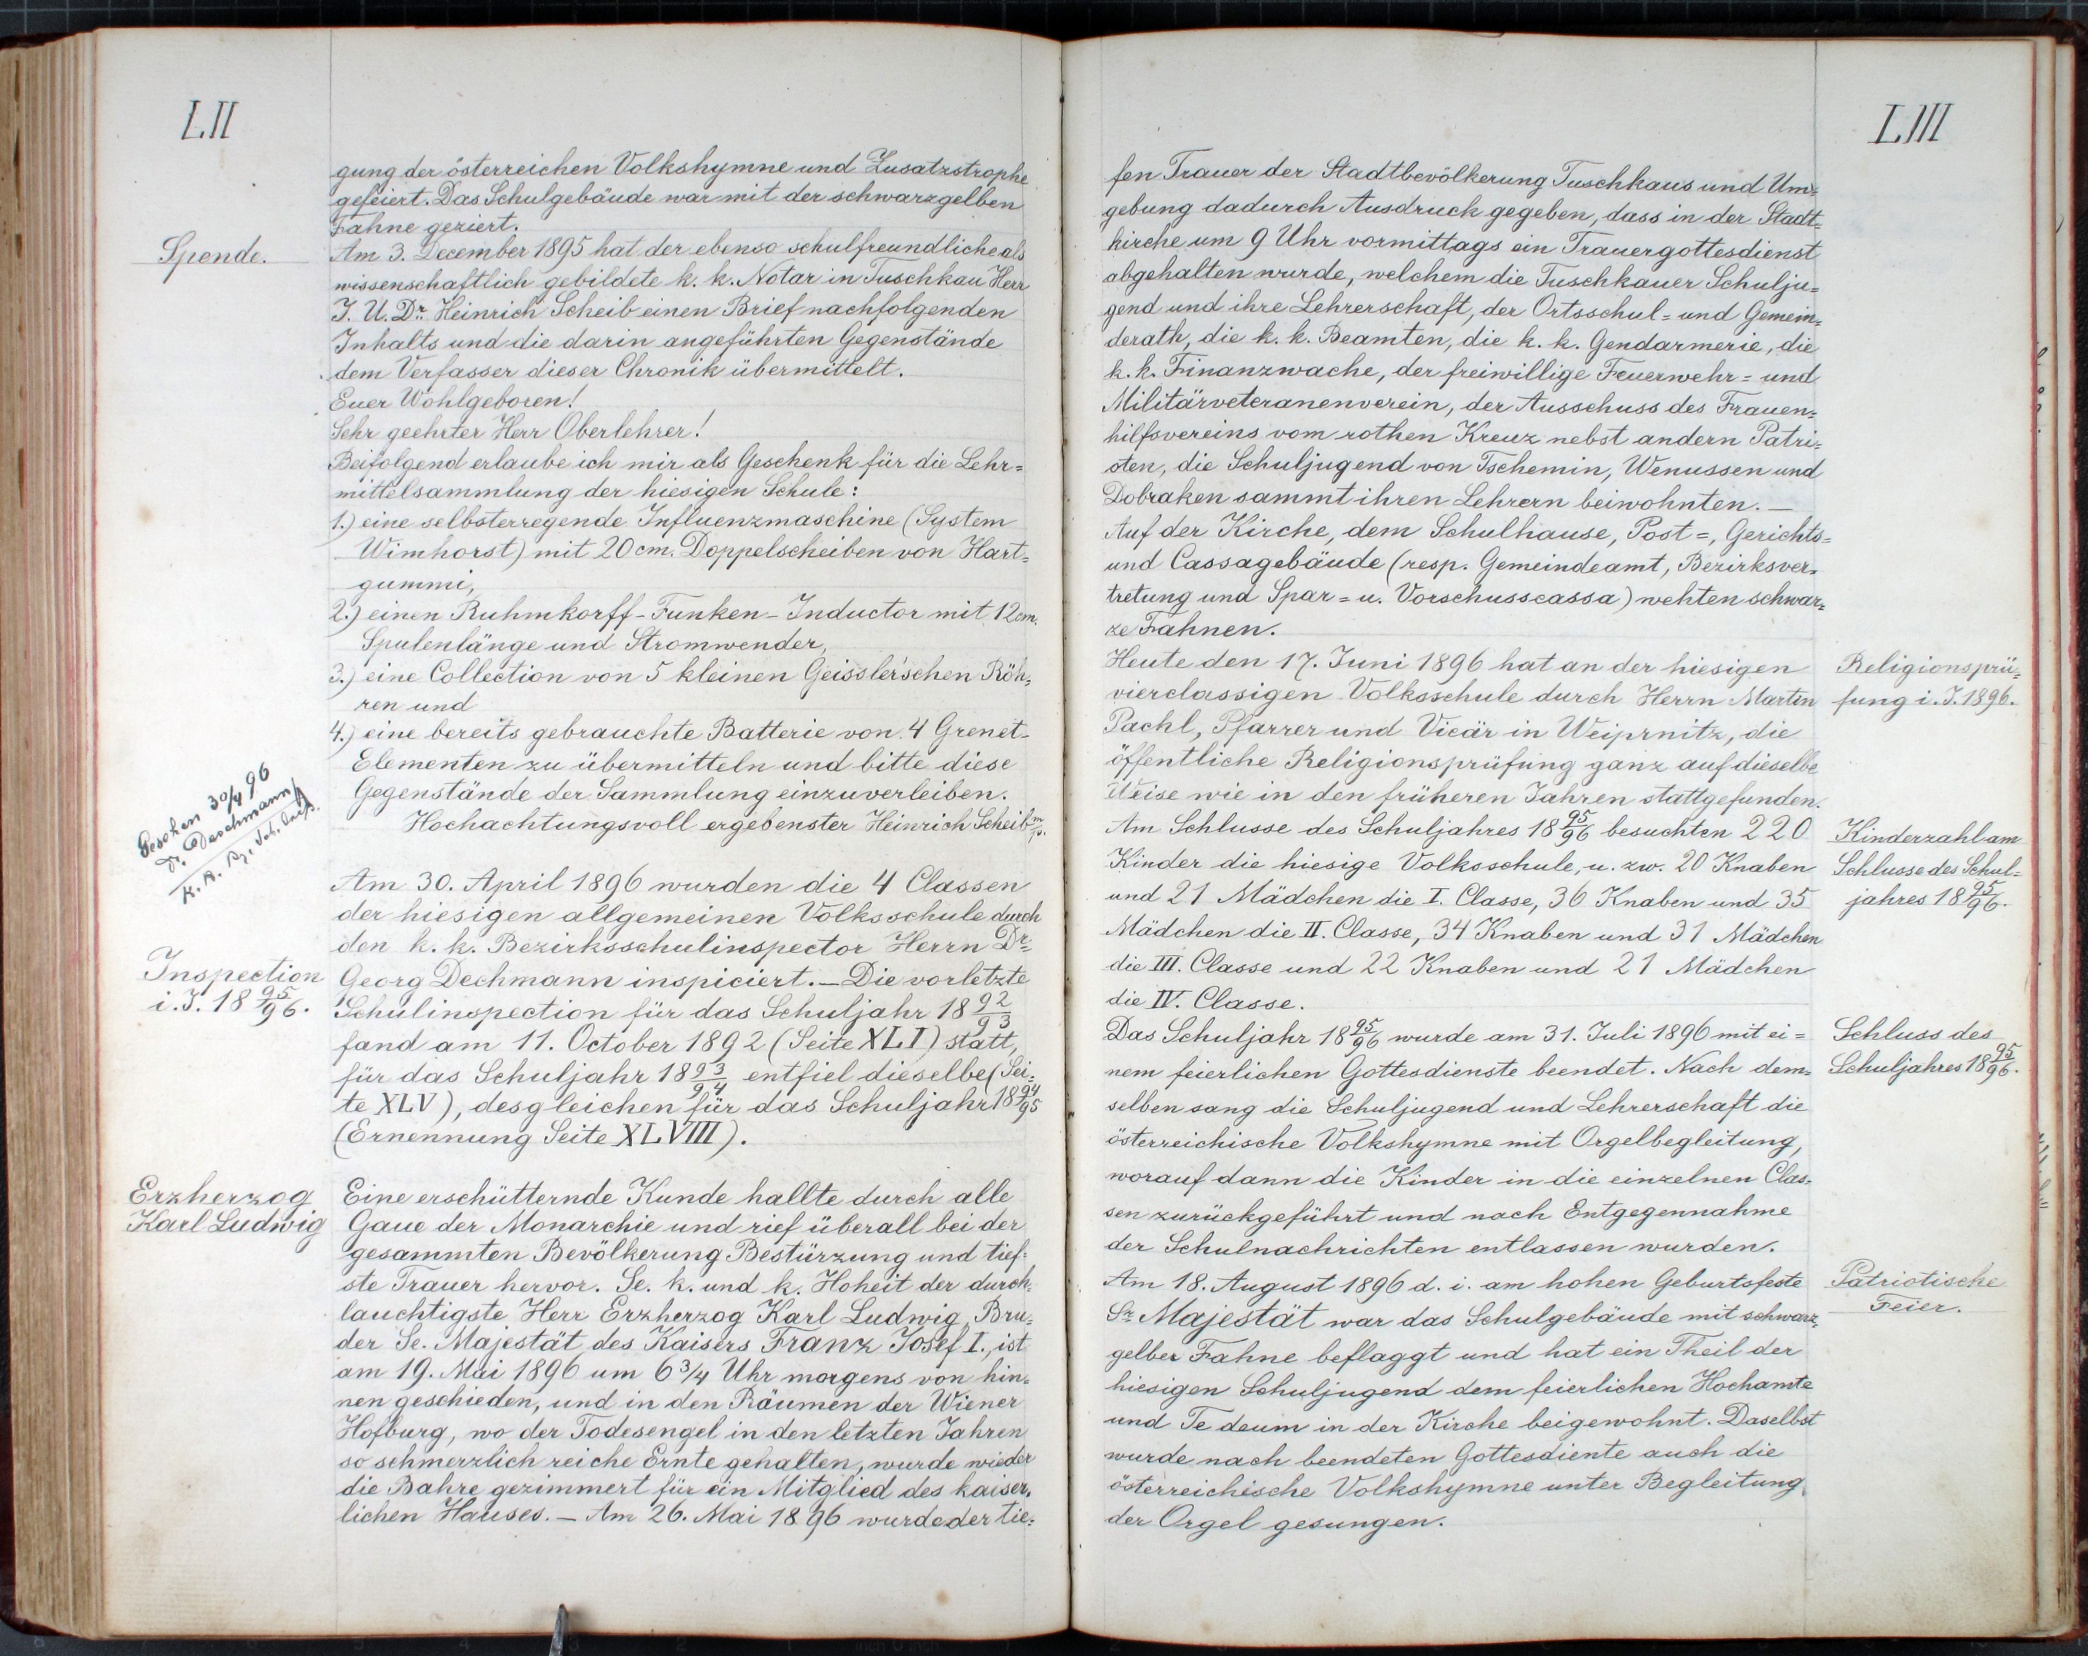 LII
gung der österreichen Volkshymne und Zusatzstrophe
gefeiert. Das Schulgebäude war mit der schwarzgelben
Fahne geziert.
Spende.
Am 3. December 1895 hat der ebenso schulfreundliche als
wissenschaftlich gebildete k. k. Notar in Tuschkau Herr
J. U. Dr. Heinrich Scheib einen Brief nachfolgenden
Inhalts und die darin angeführten Gegenstände
dem Verfasser dieser Chronik übermittelt.
Euer Wohlgeboren!
Sehr geehrter Herr Oberlehrer!
Beifolgend erlaube ich mir als Geschenk für die Lehr=
mittelsammlung der hiesigen Schule:
1.) eine selbsterregende Influenzmaschine (System
Wimhorst) mit 20 cm. Doppelscheiben von Hart=
gummi,
2.) einen Ruhmkorff-Funken-Inductor mit 12 cm.
Spulenlänge und Stromwender,
3.) eine Collection von 5 kleinen Geissler'schen Röh=
ren und
4.) eine bereits gebrauchte Batterie von 4 Grenet-
Elementen zu übermitteln und bitte diese
Gegenstände der Sammlung einzuverleiben.
Hochachtungsvoll ergebenster Heinrich Scheib m/p.
Gesehen 30/4 96
Dr. Dechmann
k. k. Bz. Sch. Insp.
Am 30. April 1896 wurden die 4 Classen
der hiesigen allgemeinen Volksschule durch
den k. k. Bezirksschulinspector Herrn Dr.
Inspection
i. J. 18 95/96.
Georg Dechmann inspiciert. — Die vorletzte
Schulinspection für das Schuljahr 18 92/93
fand am 11. October 1892 (Seite XLI) statt,
für das Schuljahr 18 93/94 entfiel dieselbe (Sei=
te XLV), desgleichen für das Schuljahr 18 94/95
(Ernennung Seite XLVIII).
Erzherzog
Karl Ludwig
Eine erschütternde Kunde hallte durch alle
Gaue der Monarchie und rief überall bei der
gesammten Bevölkerung Bestürzung und tief=
ste Trauer hervor. Se. k. und k. Hoheit der durch=
lauchtigste Herr Erzherzog Karl Ludwig, Bru=
der Se. Majestät des Kaisers Franz Josef I., ist
am 19. Mai 1896 um 6 3/4 Uhr morgens von hin=
nen geschieden, und in den Räumen der Wiener
Hofburg, wo der Todesengel in den letzten Jahren
so schmerzlich reiche Ernte gehalten, wurde wieder
die Bahre gezimmert für ein Mitglied des kaiser=
lichen Hauses. — Am 26. Mai 1896 wurde der tie=
LIII
fen Trauer der Stadtbevölkerung Tuschkaus und Um=
gebung dadurch Ausdruck gegeben, dass in der Stadt=
kirche um 9 Uhr vormittags ein Trauergottesdienst
abgehalten wurde, welchem die Tuschkauer Schulju=
gend und ihre Lehrerschaft, der Ortsschul= und Gemein=
derath, die k. k. Beamten, die k. k. Gendarmerie, die
k. k. Finanzwache, der freiwillige Feuerwehr= und
Militärveteranenverein, der Ausschuss des Frauen=
hilfsvereins vom rothen Kreuz nebst andern Patri=
oten, die Schuljugend von Tschemin, Wenussen und
Dobraken sammt ihren Lehrern beiwohnten. —
Auf der Kirche, dem Schulhause, Post=, Gerichts=
und Cassagebäude (resp. Gemeindeamt, Bezirksver=
tretung und Spar= u. Vorschusscassa) wehten schwar=
ze Fahnen.
Heute den 17. Juni 1896 hat an der hiesigen
vierclassigen Volksschule durch Herrn Martin
Pachl, Pfarrer und Vicär in Weiprnitz, die
öffentliche Religionsprüfung ganz auf dieselbe
Weise wie in den früheren Jahren stattgefunden.
Religionsprü=
fung i. J. 1896.
Am Schlusse des Schuljahres 18 95/96 besuchten 220
Kinder die hiesige Volksschule, u. zw. 20 Knaben
und 21 Mädchen die I. Classe, 36 Knaben und 35
Mädchen die II. Classe, 34 Knaben und 31 Mädchen
die III. Classe und 22 Knaben und 21 Mädchen
die IV. Classe.
Kinderzahl am
Schlusse des Schul=
jahres 18 95/96.
Das Schuljahr 18 95/96 wurde am 31. Juli 1896 mit ei=
nem feierlichen Gottesdienste beendet. Nach dem=
selben sang die Schuljugend und Lehrerschaft die
österreichische Volkshymne mit Orgelbegleitung,
worauf dann die Kinder in die einzelnen Clas=
sen zurückgeführt und nach Entgegennahme
der Schulnachrichten entlassen wurden.
Schluss des
Schuljahres 18 95/96.
Am 18. August 1896 d. i. am hohen Geburtsfeste
Sr. Majestät war das Schulgebäude mit schwarz=
gelber Fahne beflaggt und hat ein Theil der
hiesigen Schuljugend dem feierlichen Hochamte
und Te deum in der Kirche beigewohnt. Daselbst
wurde nach beendeten Gottesdiente auch die
österreichische Volkshymne unter Begleitung
der Orgel gesungen.
Patriotische
Feier.